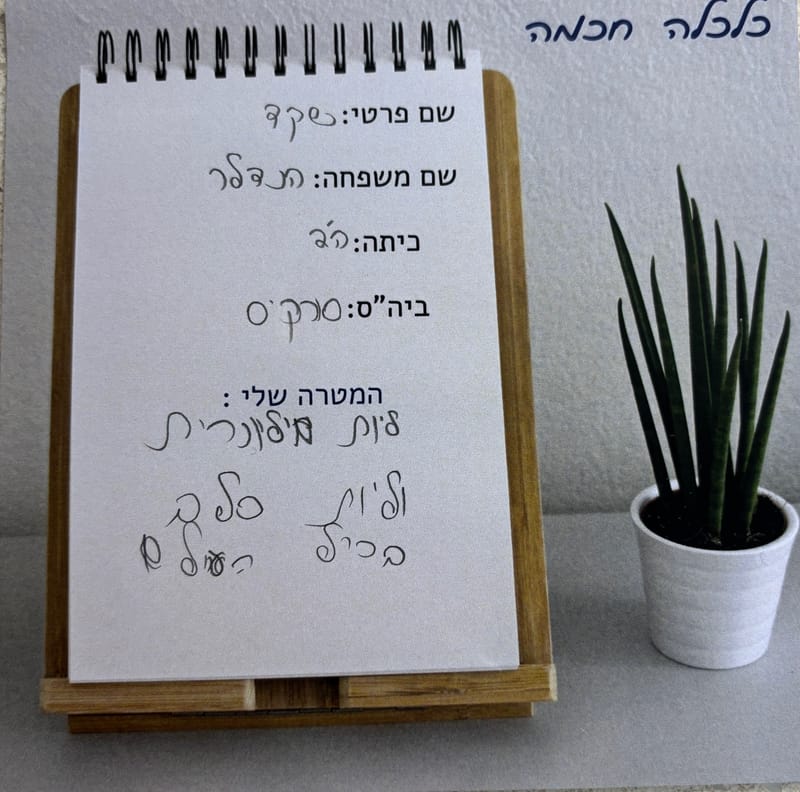 כלכלה חכמה
שם פרטי: שקד
שם משפחה: הנדלר
כיתה: ה'2
ביה"ס: סרקיס
המטרה שלי :
ליות מיליונרית
וליות סלב
בכיל העולם